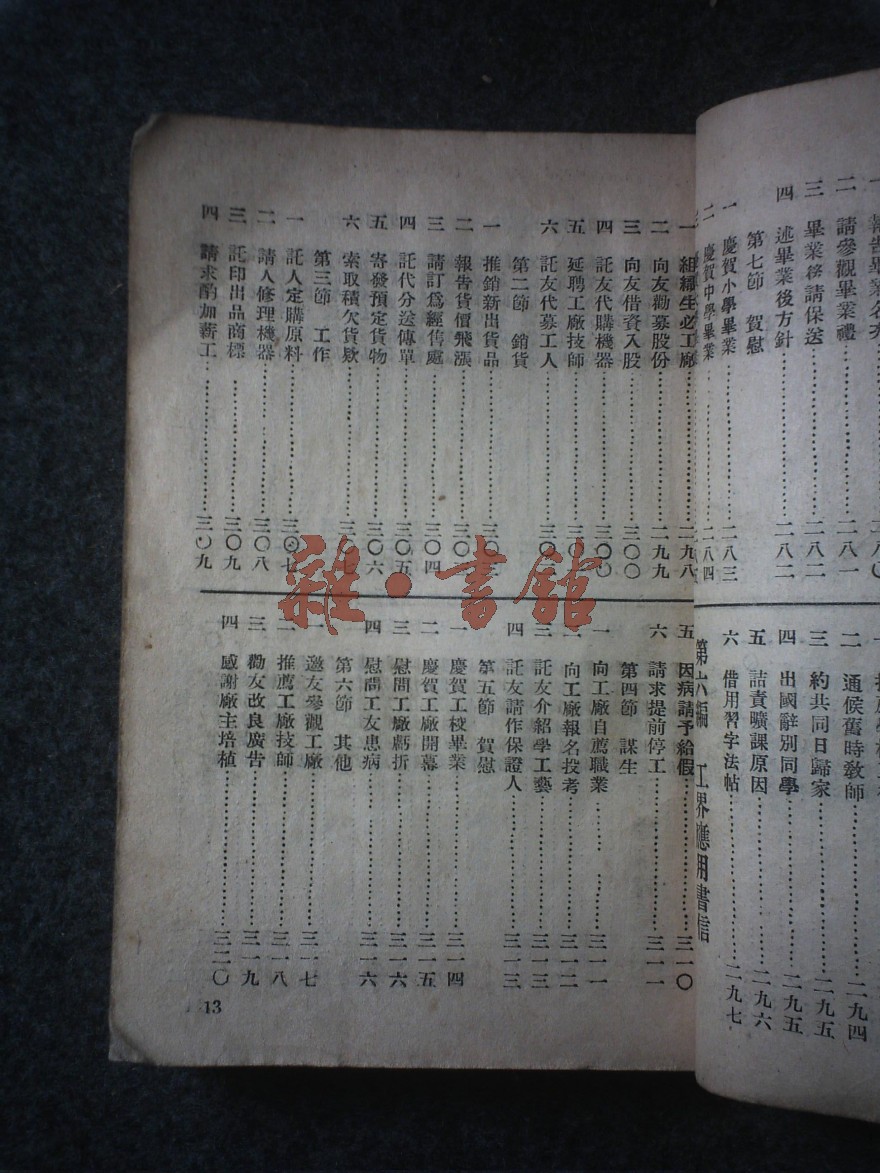 二 請參觀畢業禮……二八一
三 畢業後請保送……二八二
四 述畢業後方針……二八二
第七節 賀慰
一 慶賀小學畢業……二八三
二 慶賀中學畢業……二八四
二 通候舊時敎師……二九四
三 約共同日歸家……二九五
四 出國辭別同學……二九五
五 詰責曠課原因……二九六
六 借用習字法帖……二九七
第六編 工界應用書信
二 向友勸募股份……二九九
三 向友借資入股……三〇〇
四 託友代購機器……三〇〇
五 延聘工廠技師……三〇
六 託友代募工人……三〇
第二節 銷貨
一 推銷新出貨品……三〇
二 報告貨價飛漲……三〇
三 請訂爲經售處……三〇四
四 託代分送傳單……三〇五
五 寄發預定貨物……三〇六
六 索取積欠貨欵……三〇
第三節 工作
一 託人定購原料……三〇七
二 請人修理機器……三〇八
三 託印出品商標……三〇九
四 請求酌加薪工……三〇九
五 因病請予給假……三一〇
六 請求提前停工……三一一
第四節 謀生
一 向工廠自薦職業……三一一
二 向工廠報名投考……三一二
三 託友介紹學工藝……三一三
四 託友請作保證人……三一三
第五節 賀慰
一 慶賀工校畢業……三一四
二 慶賀工廠開幕……三一五
三 慰問工廠虧折……三一六
四 慰問工友患病……三一六
第六節 其他
一 邀友參觀工廠……三一七
二 推薦工廠技師……三一八
三 勸友改良廣告……三一九
四 感謝廠主培植……三二〇
13
雜·書館